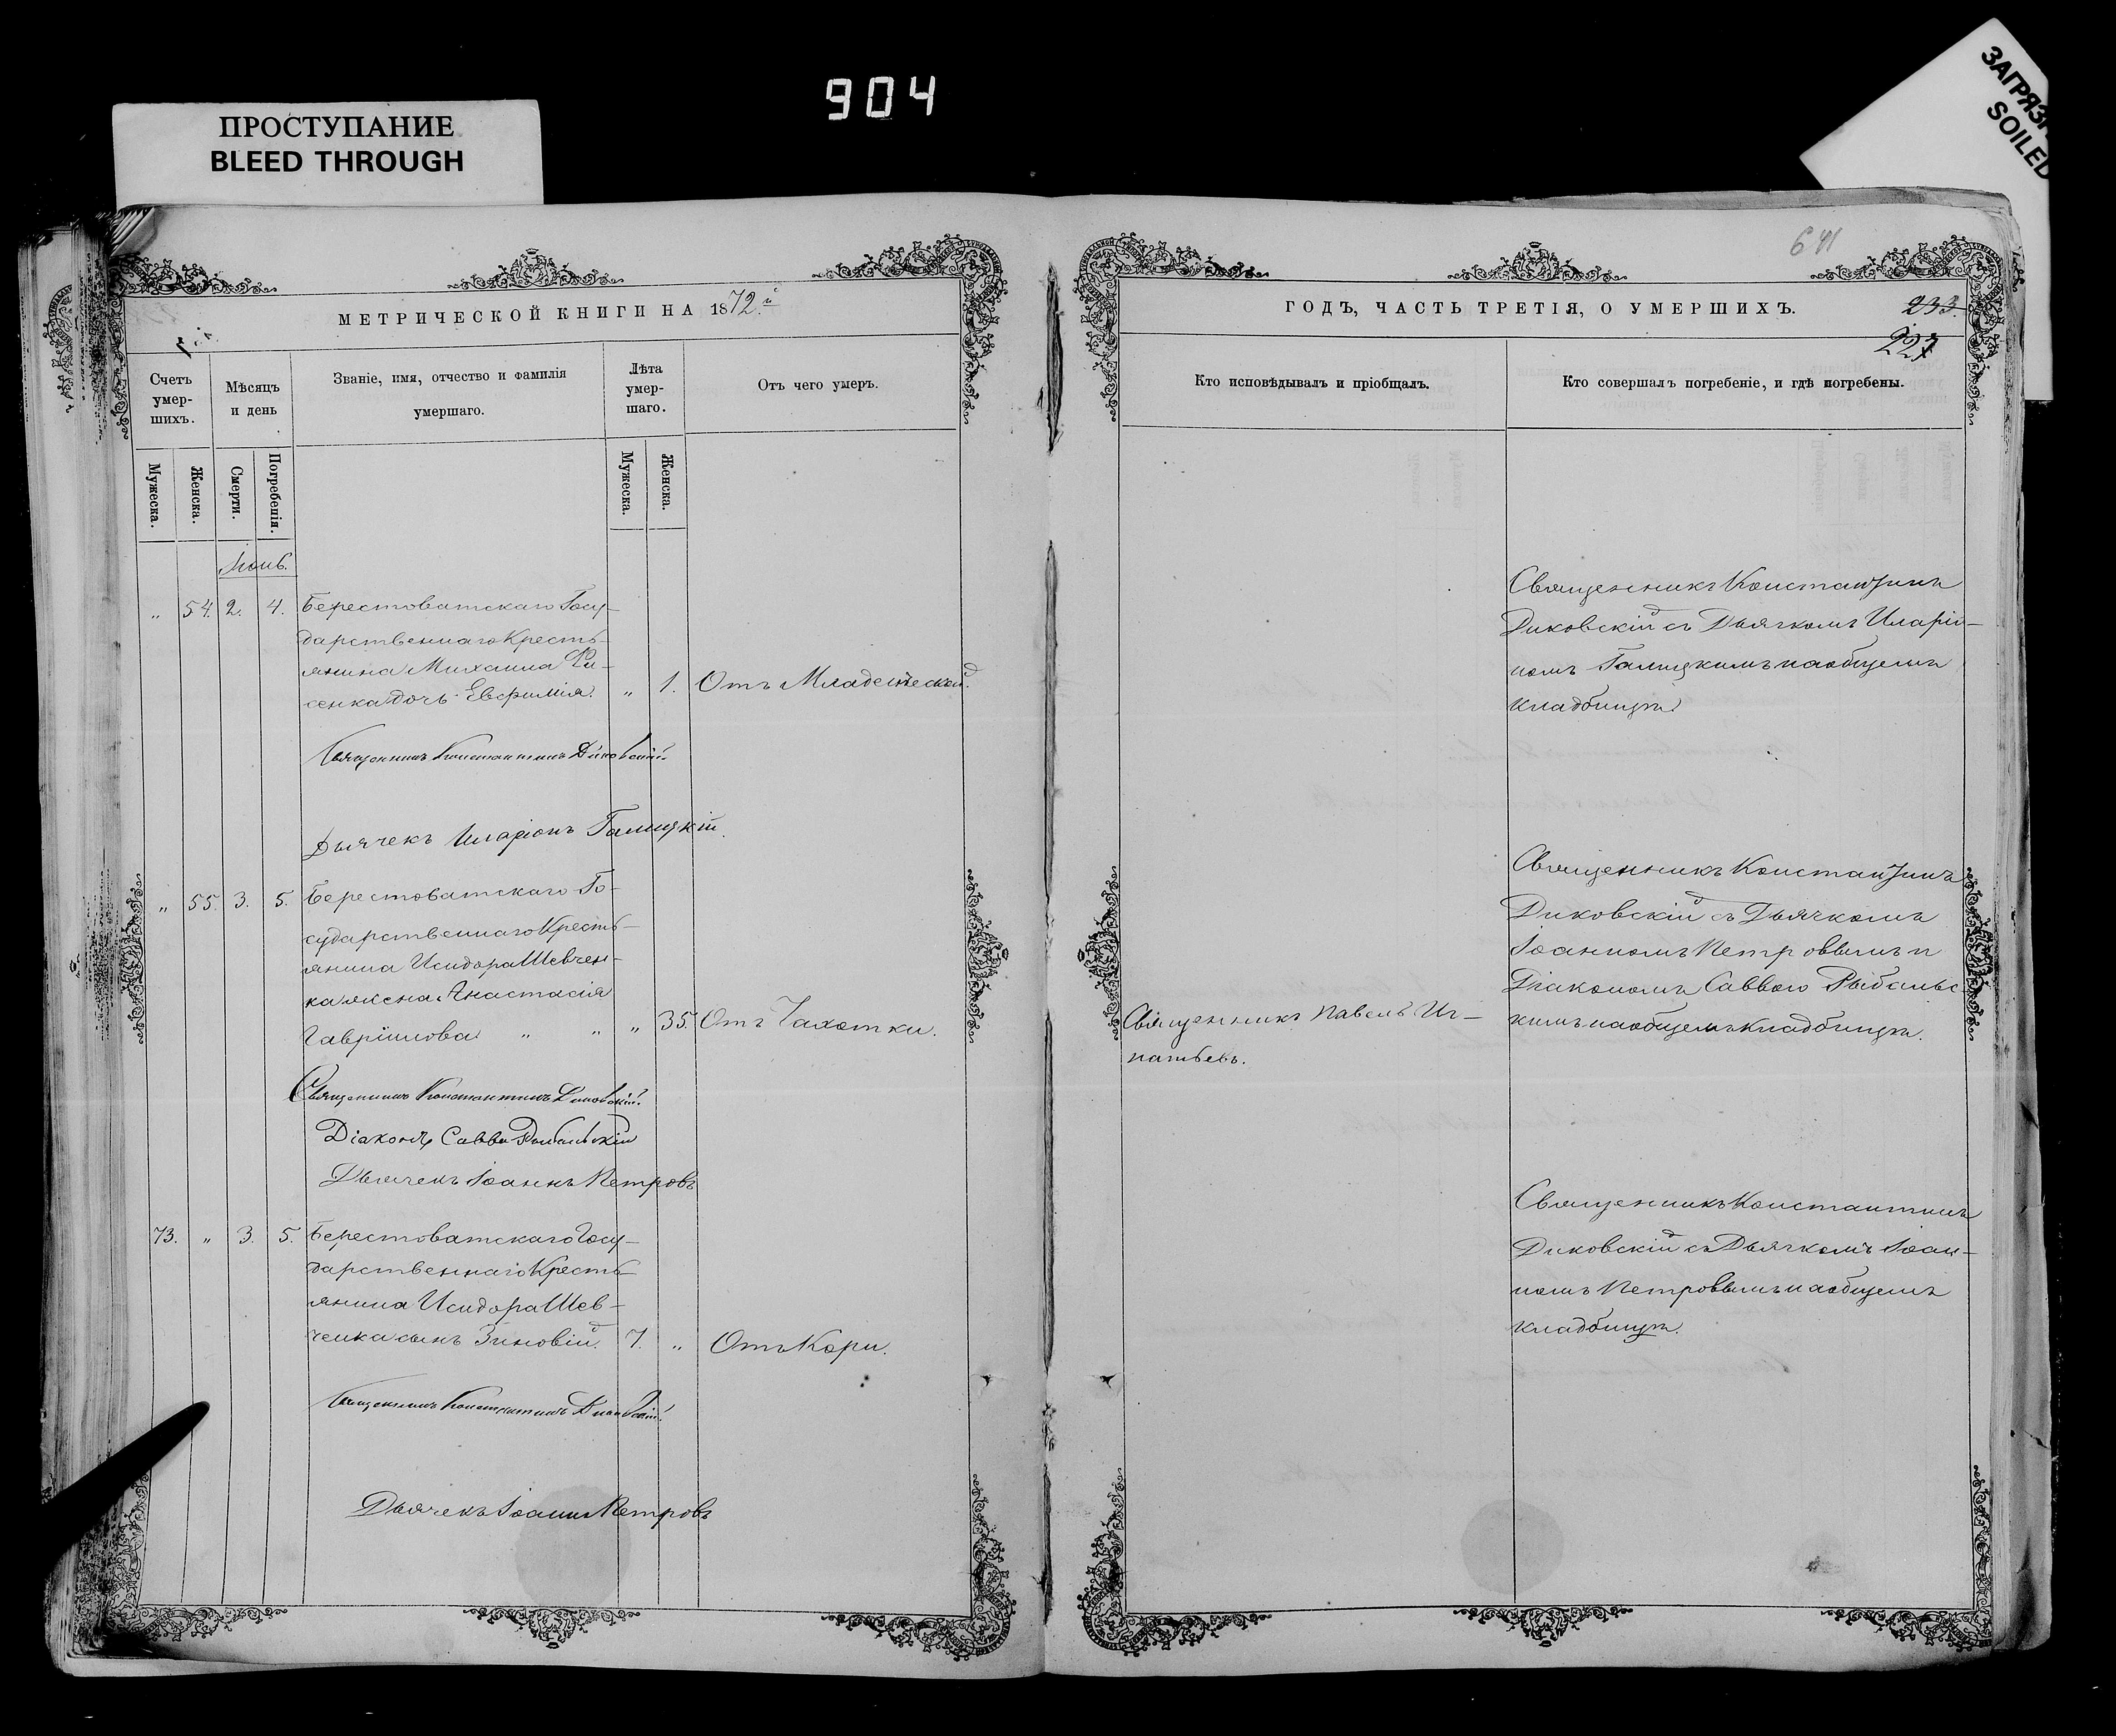 904
ПРОСТУПАНИЕ
BLEED THROUGH
SOILED
641
МЕТРИЧЕСКОЙ КНИГИ НА 1872.й
Счетъ
умер-
шихъ.
Мѣсяцъ
и день
Званіе, имя, отчество и фамилія
умершаго.
Лѣта
умер-
шаго.
Отъ чего умеръ.
Мужеска.
Женска.
Смерти.
Погребенія.
Мужеска.
Женска.
„ 54. 2. 4. Берестоватскаго Госу-
дарственнаго Кресть-
янина Михаила
сенка дочь Евфимія. „ 1. Отъ Младенческой.
Священникъ Константинъ Диковскій.
Дьячекъ Иларіонъ Галицкій.
„ 55. 3. 5. Берестоватскаго Го-
сударственнаго Кресть-
янина Исидора Шевчен-
ка жена Анастасія
Гавріилова „ „ „ 35. Отъ Чахотки.
Священникъ Константинъ Диковскій.
Діаконъ Савва Рыбальскій
Дьячекъ Іоаннъ Петровъ
73. „ 3. 5. Берестоватскаго Госу-
дарственнаго Кресть-
янина Исидора Шев-
ченка сынъ Зиновій. 7. „ Отъ Кори.
Священникъ Константинъ Диковскій.
Дьячекъ Іоаннъ Петровъ
ГОДЪ, ЧАСТЬ ТРЕТІЯ, О УМЕРШИХЪ.
233.
227
Кто исповѣдывалъ и пріобщалъ.
Кто совершалъ погребеніе, и гдѣ погребены.
Священникъ Константинъ
Диковскій съ Дьячкомъ Иларіо-
номъ Галицкимъ на общемъ
кладбищѣ.
Священникъ Павелъ Иг-
натьевъ.
Священникъ Константинъ
Диковскій съ Дьячкомъ
Іоанномъ Петровымъ и
Діакономъ Саввою Рыбальс-
кимъ на общемъ кладбищѣ.
Священникъ Константинъ
Диковскій съ Дьячкомъ Іоан-
номъ Петровымъ на общемъ
кладбищѣ.